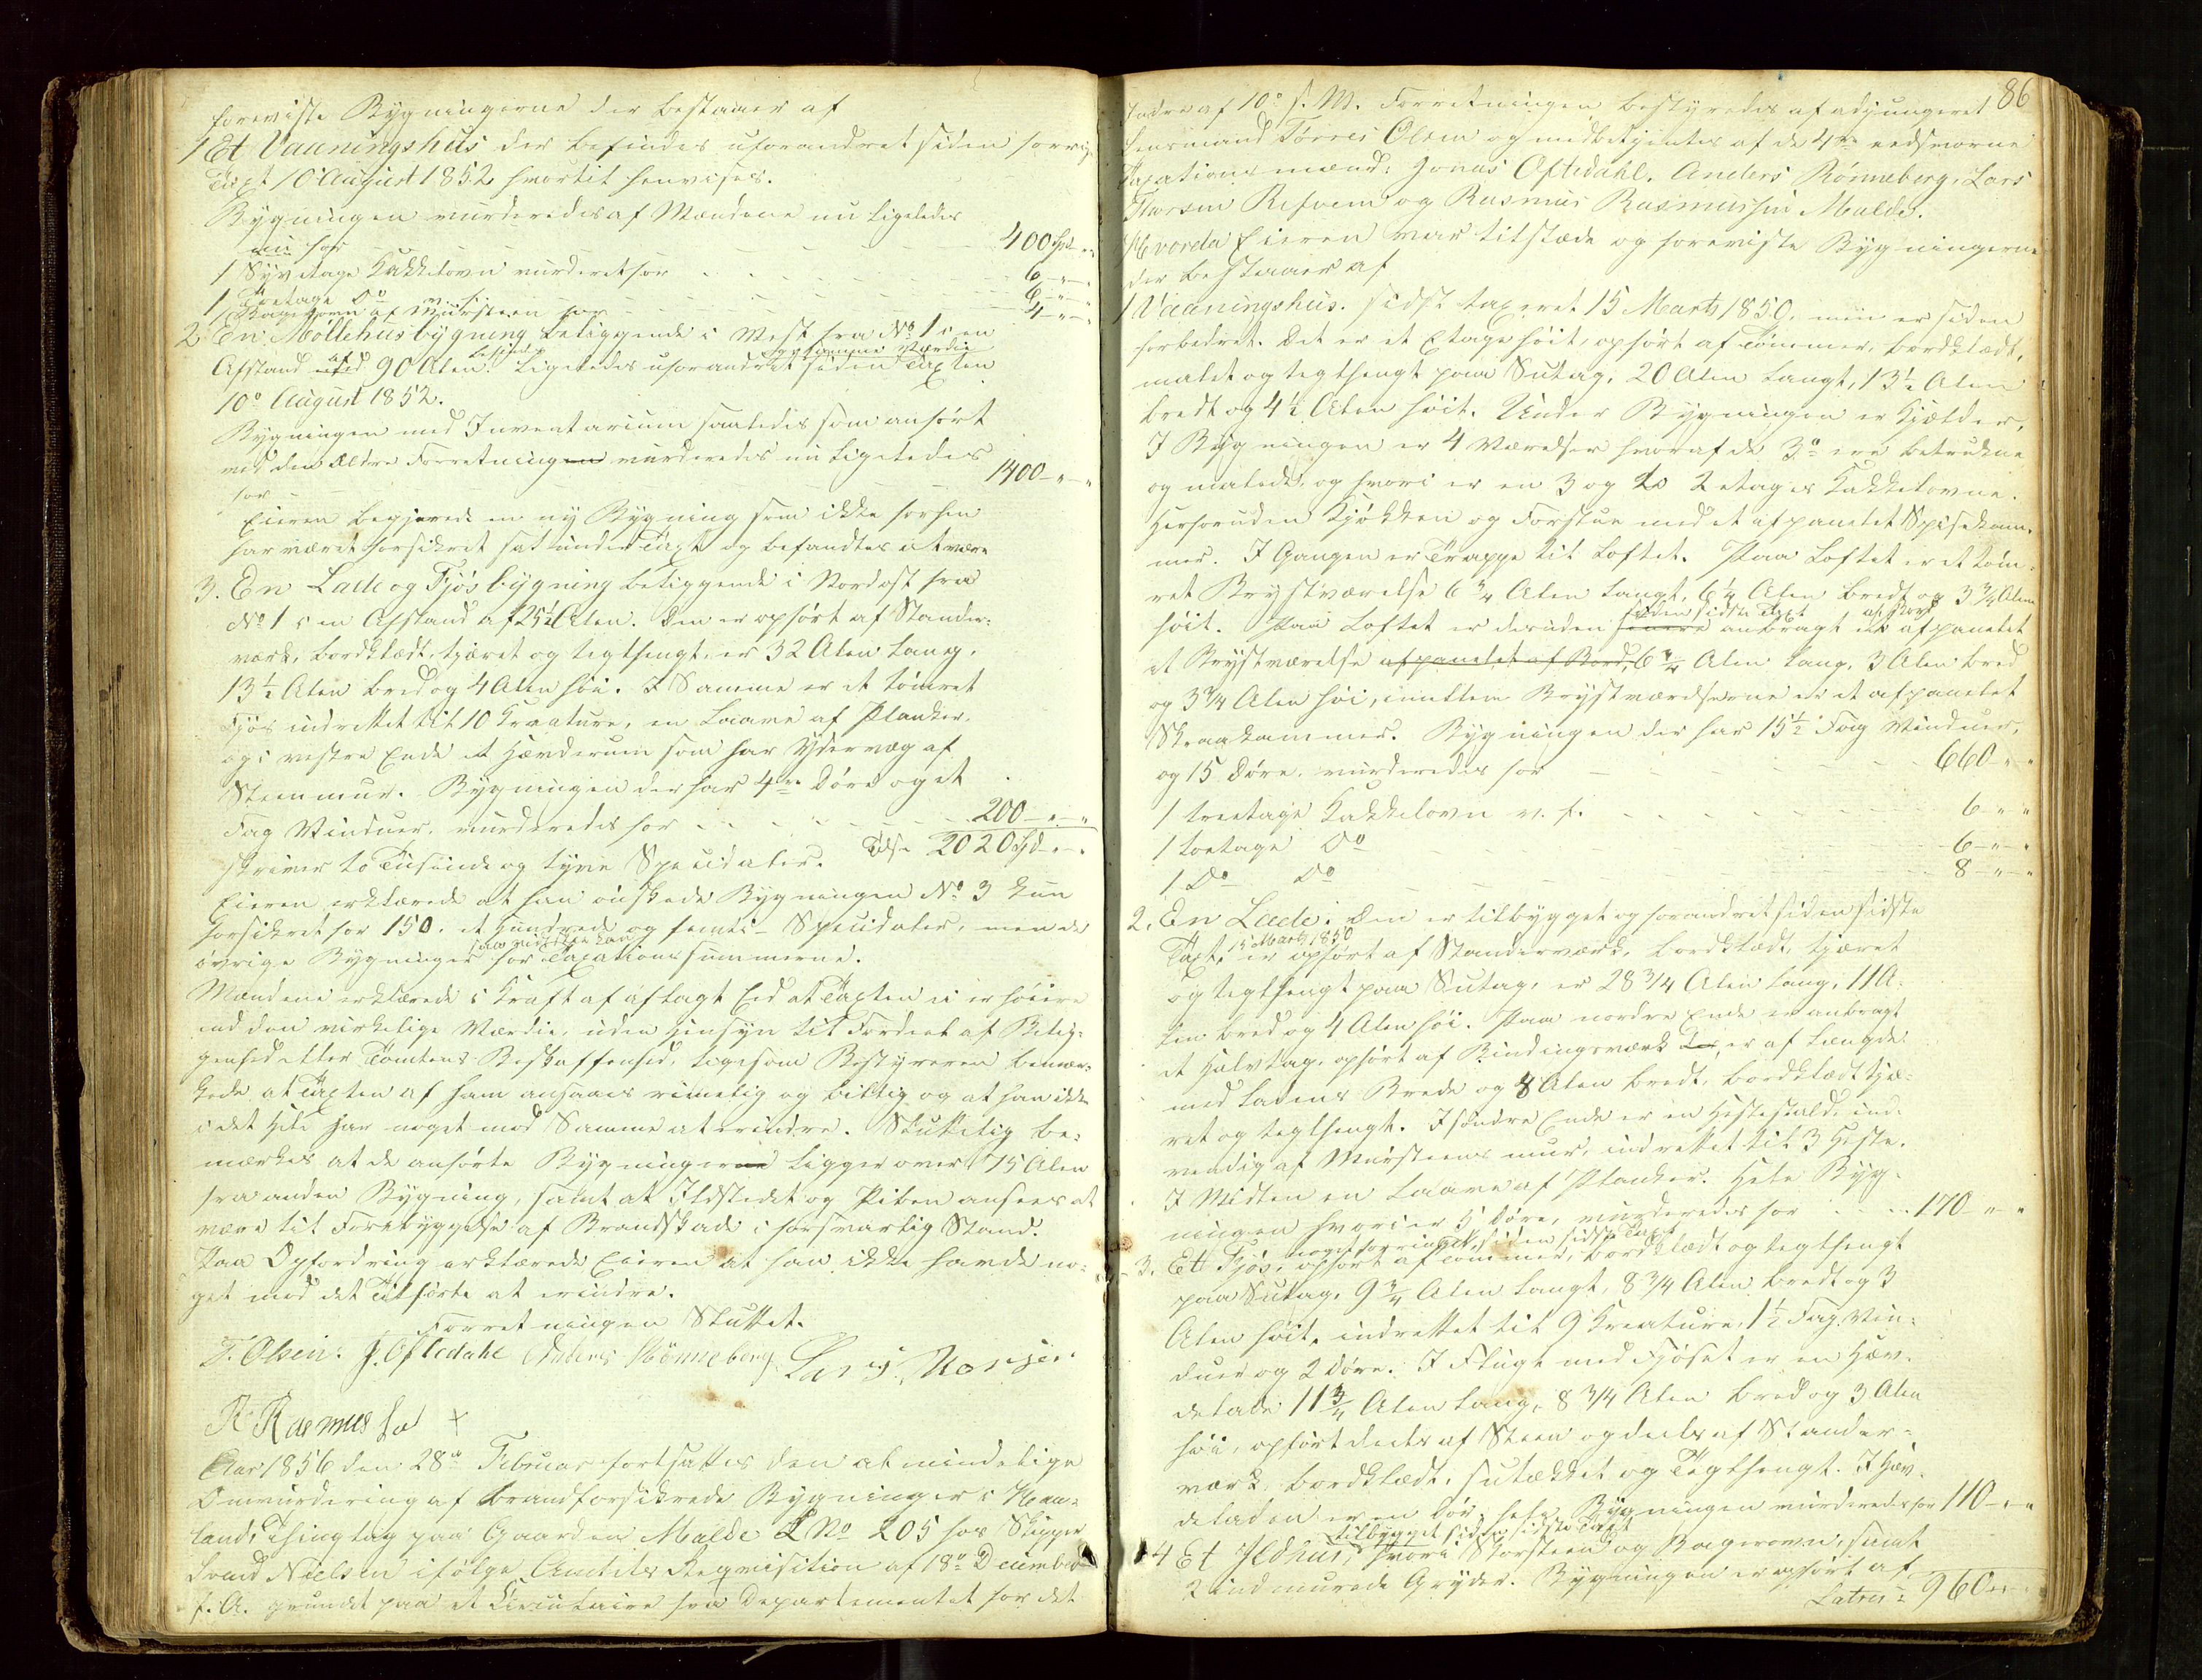 foreviste Bygningerne der bestaaer af
1 Et Vaaningshuus der befindes uforandret siden forrige
Taxt 10 August 1852 hvortil henvises.
Bygningen vurderedes af Mændene nu ligeledes
nu for 400 Spd - "
1 Syvetage Kakkelovn vurderet for 6 - " - "
1 Toetage Do v. f. 6 - " - "
1 Bagerovn af Muursteen for 4 - " - "
2 En Møllehusbygning beliggende i Vest fra No 1 i en
Afstand af 90 Alen. befindes Ligeledes uforandret siden Taxten
10de August 1852.
Bygningen med Inventarium saaledes som anført
ved den ældre Forretning vurderedes nu ligeledes
for 1400 - " - "
Eieren begjærede en ny Bygning som ikke forhen
har været forsikret sat under Taxt og befandtes at være
3. En Lade og Fjøsbygning beliggende i Nordost fra
No 1 i en Afstand af 25½ Alen. Den er opført af Stander-
værk, bordklædt, tjæret og teglhengt, er 32 Alen lang,
13½ Alen bred og 4 Alen høi. I Samme er et tømret
Fjøs indrettet til 10 Kreature, en Laave af Planker,
og i vestre Ende et Hævderum som har Ydervæg af
Steenmuur. Bygningen der har 4re Døre og et
Fag Vinduer, vurderedes for 200 - " - "
skriver to Tusinde og tyve Speciedaler. Tils. 2020 Spd - " -
Eieren erklærede at han ønskede Bygningen No 3 kun
forsikret for 150. et Hundrede og femti - Speciedaler, men de
øvrige Bygninger for Taxationssummerne.
Mændene erklærede i Kraft af aflagt Eed at Taxten ei er høiere
end den virkelige Værdie, uden Hensyn til Fordeel af Belig-
genhed eller Tomtens Beskaffenhed, ligesom Bestyreren bemær-
kede at Taxten af ham ansaaes rimelig og billig og at han ikke
i det Hele har noget mod Samme at erindre. Sluttelig be-
mærkes at de anførte Bygninger ligger over 75 Alen
fra anden Bygning, samt at Ildstedet og Piben ansees at
være til Forebyggelse af Brandskade i forsvarlig Stand.
Paa Opfordring erklærede Eieren at han ikke havde no-
get mod det Tilførte at erindre.
Forretningen Sluttet.
T. Olsen. J. Oftedahl Anders Rønneberg Lars
R Rasmus
Aar 1856 den 28de Februar fortsattes den almindelige
Omvurdering af brandforsikrede Bygninger i Haa-
lands Thinglag paa Gaarden Malde L No 205 hos Skipper
Nielsen ifølge Amtets Reqvisition af 18de December
f. A. grundet paa et Circulaire fra Departementet for det
86
Indre af 10de s. M. Forretningen bestyredes af adjungeret
Lensmand Tørres Olsen og medbetjentes af de 4re eedsvorne
Taxationsmænd: Jonas Oftedahl, Anders Rønneberg, Lars
Thorsen Refvem og Rasmus Rasmussen Malde.
Hvorda Eieren var tilstæde og foreviste Bygningerne
der bestaaer af
1 Vaaningshus. sidst taxeret 15 Marts 1850, men er siden
forbedret. Det er et Etage høit, opført af Tømmer, bordklædt,
malet og teglhengt paa Sutag, 20 Alen langt, 13½ Alen
bredt og 4½ Alen høit. Under Bygningen er Kjælder,
I Bygningen er 4 Værelser hvoraf de 3de ere betrukne
og malede, og hvori er en 3 og to 2 etages Kakkelovne.
Herforuden Kjøkken og Forstue med et afpanelet Spisekam-
mer. I Gangen er Trappe til Loftet. Paa Loftet er et tøm-
ret Brystværelse 6¾ Alen langt, 6¼ Alen bredt og 3¾ Alen
høit. Paa Loftet er desuden siden sidste Taxt anbragt afpanelet
et Brystværelse afpanelet af Bord, 6¾ Alen lang, 3 Alen bred
og 3¾ Alen høi, imellem Brystværelserne er et afpanelet
Skraakammer. Bygningen der har 15½ Fag Vinduer,
og 15 Døre, vurderedes for 660 - " - "
1 treetage Kakkelovn v. f. 6 - " - "
1 toetage Do 6 - " - "
1 Do Do 8 - " - "
2. En Lade: Den er tilbygget og forandret siden sidste
Taxt, 15 Marts 1850 er opført af Standerværk, bordklædt, tjæret
og teglhengt paa Sutag, er 28¾ Alen lang, 11 A-
len bred og 4 Alen høi. Paa nordre Ende er anbragt
et Halvtag, opført af Bindingsværk, er af Længde
med Ladens Brede og 8 Alen bredt, bordklædt tjæ-
ret og teglhengt. I søndre Ende er en Hestestald, ind-
vendig af Muursteens muur, indrettet til 3 Heste.
I Midten en Laave af Planker. Hele Byg-
ningen hvori er 5 Døre, vurderedes for 170 - " - "
3. Et Fjøs, noget forringet siden sidste Taxt opført af Tømmer, bordklædt og teglhengt
paa Sutag, 9¾ Alen langt, 8¾ Alen bredt og 3
Alen høit, indrettet til 9 Kreature, 1½ Fag Vin-
duer og 2 Døre. I Flugt med Fjøset er en Hæv-
delade 11¾ Alen lang, 8¾ Alen bred og 3 Alen
høi, opført deels af Steen og deels af Stander-
værk, bordklædt, sutækket og Teglhengt. I Hæv-
deladen er en Dør, hele Bygningen vurderedes for 110 - " - "
4 Et Ildhus, tilbygget siden sidste Taxt hvori Skorsteen og Bagerovn, samt
2 indmurede Gryder. Bygningen er opført af
Latus = 960 - "